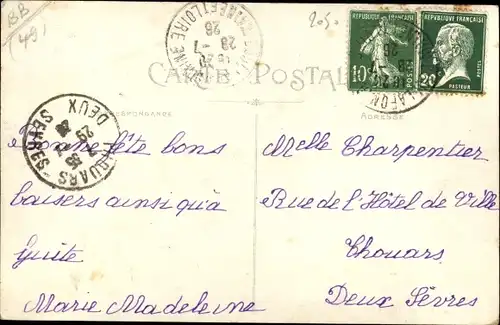 BB
(49)
205
MAINE ET LOIRE
28 -7
26
RÉPUBLIQUE FRANÇAISE
10c
RÉPUBLIQUE FRANÇAISE
POSTES
20c
PASTEUR
CARTE POSTALE
CORRESPONDANCE
ADRESSE
THOUARS
DEUX-SÈVRES
29
Bonne fête bons
baisers ainsi qu'à
Guite
Marie Madeleine
Melle Charpentier
Rue de l'Hôtel de Ville
Thouars
Deux Sèvres